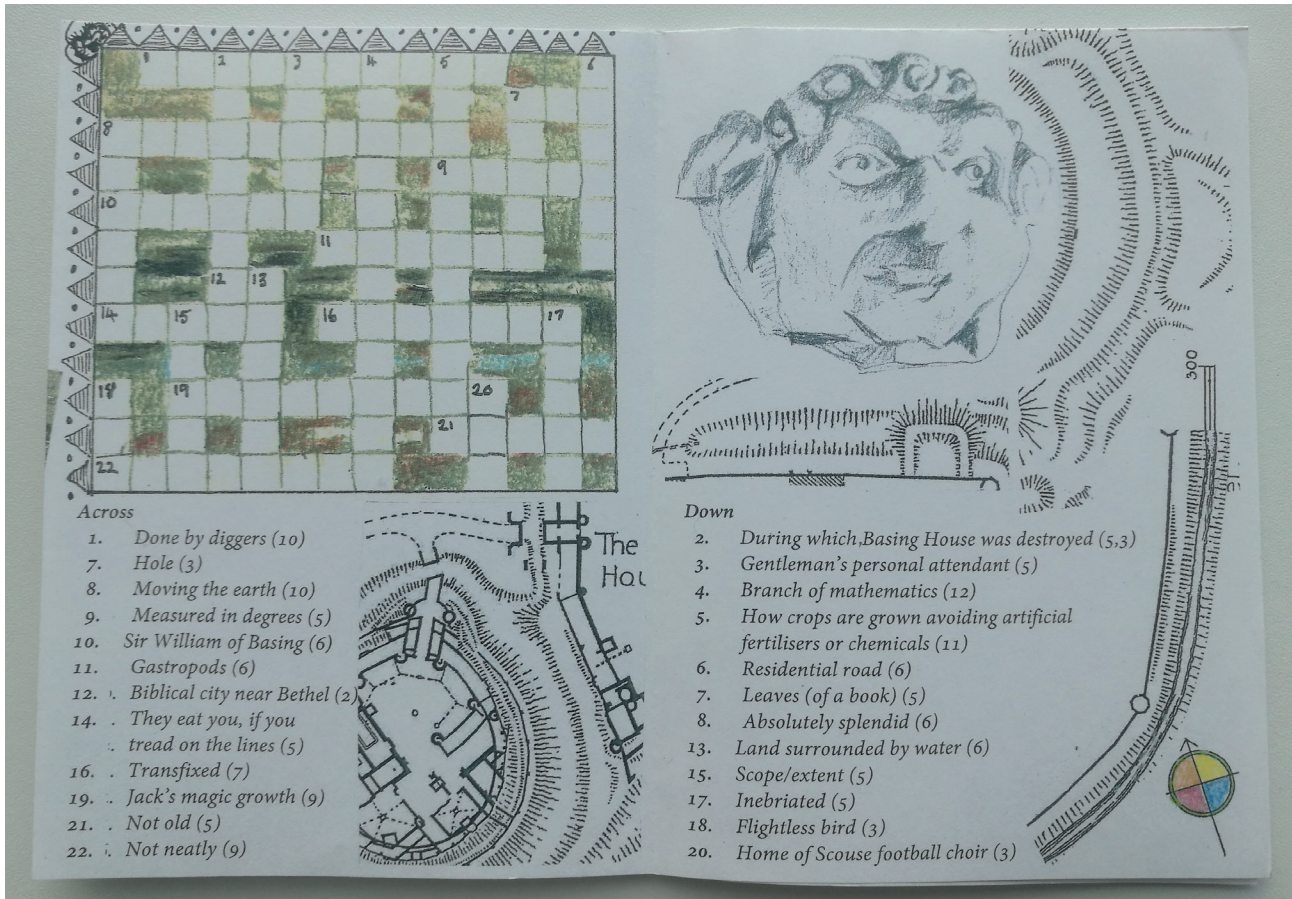 1 2 3 4 5 6
7
8
9
10
11
12 13
14 15 16 17
18 19 20
21
22
Across
1. Done by diggers (10)
7. Hole (3)
8. Moving the earth (10)
9. Measured in degrees (5)
10. Sir William of Basing (6)
11. Gastropods (6)
12. Biblical city near Bethel (2)
14. They eat you, if you
tread on the lines (5)
16. Transfixed (7)
19. Jack's magic growth (9)
21. Not old (5)
22. Not neatly (9)
The
Down
2. During which, Basing House was destroyed (5,3)
3. Gentleman's personal attendant (5)
4. Branch of mathematics (12)
5. How crops are grown avoiding artificial
fertilisers or chemicals (11)
6. Residential road (6)
7. Leaves (of a book) (5)
8. Absolutely splendid (6)
13. Land surrounded by water (6)
15. Scope/extent (5)
17. Inebriated (5)
18. Flightless bird (3)
20. Home of Scouse football choir (3)
300